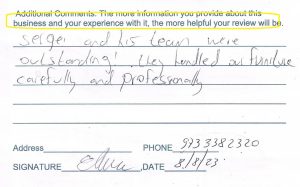 Additional Comments: The more information you provide about this
business and your experience with it, the more helpful your review will be.
Sergei and his team were
outstanding! They handled our furniture
carefully and professionally
Address PHONE 9733382320
SIGNATURE ,DATE 8/8/23